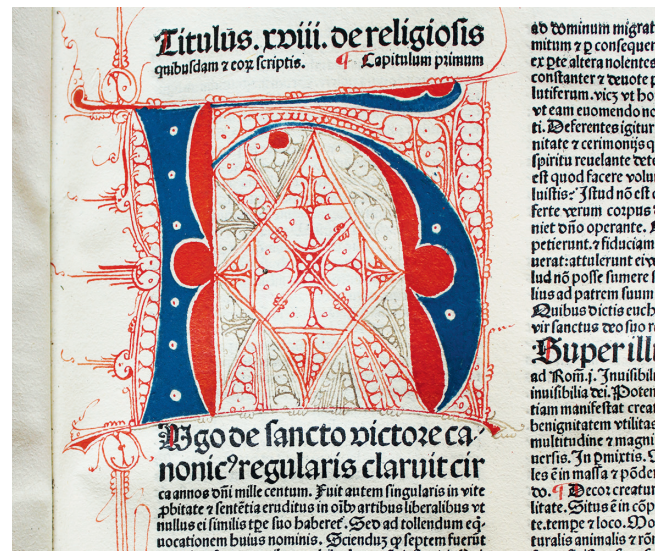 Titulus. xviii. de religiosis
quibusdam ⁊ eoꝝ scriptis. ¶ Capitulum primum
H
Ugo de sancto victore ca⸗
nonicꝰ regularis claruit cir
ca annos dñi mille centum. Fuit autem singularis in vite
ꝓbitate ⁊ sentẽtia eruditus in oĩb artibus liberalibus vt
nullus ei similis tꝑe suo haberet᷑. Sed ad tollendum eq̃⸗
uocationem huius nominis. Sciendũ ꝙ septem fuerũt
ad dominum migrat
mitum ⁊ ꝑ consequen
ex ꝑte altera nolentes
constanter ⁊ deuote p
lutiferum. vicꝫ vt ho
vt eam euomendo no
ti. Deferentes igitur
nitate ⁊ cerimonijs q
spiritu reuelante dete
est quod facere volu
luistis? Istud nõ est
ferte verum corpus
niet dño operante.
petierunt. ⁊ fiduciam
uerat: attulerunt ei
lud nõ posse sumere s
lius ad patrem suum
Quibus dictis euch
vir sanctus deo suo r
Super illu
ad Rom̃. j. Inuisibili
inuisibilia dei. Poten
tiam manifestat creat
benignitatem vtilitas
multitudine ⁊ magni
uersis. In ꝑmixtis.
les ẽ in massa ⁊ põder
do. ¶ Decor creatur
litate. Situs ẽ in cõp
te. tempe ⁊ loco. Mo
turalis animalis ⁊ rõn